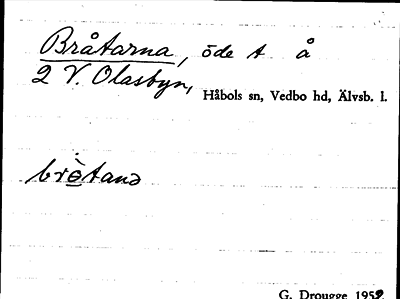 Bråtarna, öde t å
2 V. Olasbyn,
Håbols sn, Vedbo hd, Älvsb. l.
brɵ̀tanə
G. Drougge 1952